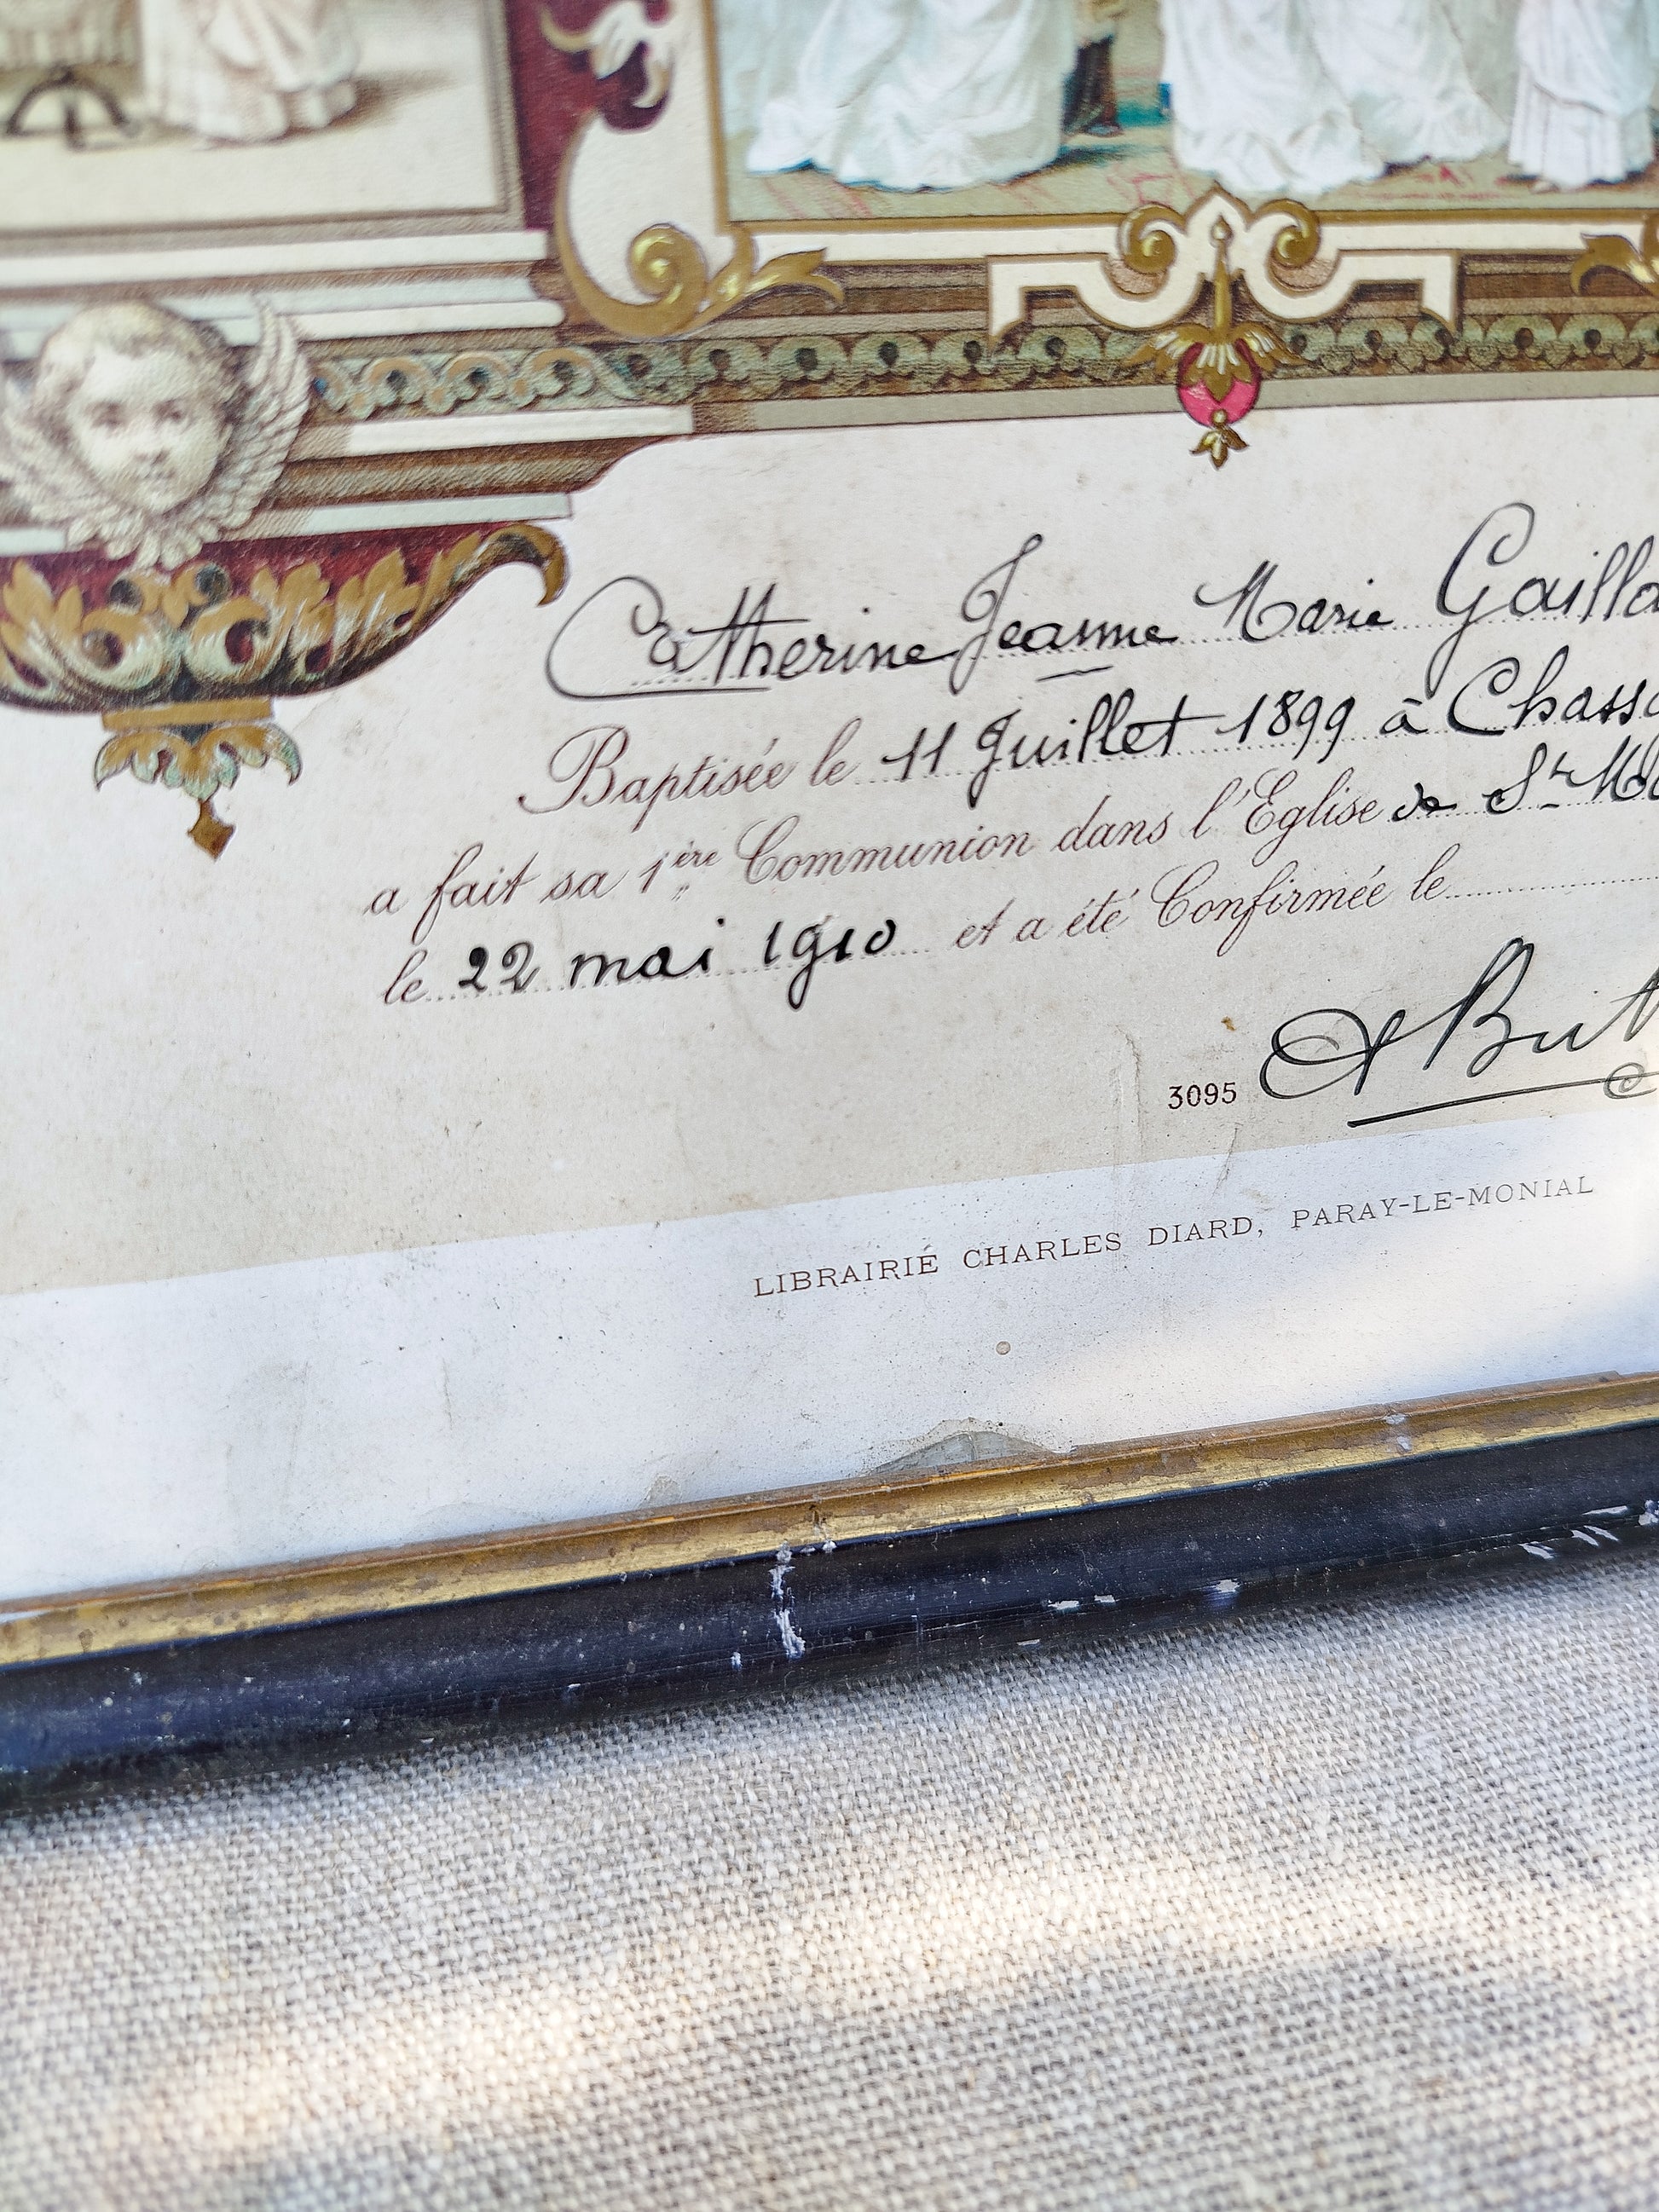 Catherine Jeanne Marie Gailla
Baptisée le 11 Juillet 1899 à Chass
a fait sa 1ère Communion dans l'Eglise de St
le 22 mai 1910 et a été Confirmée le
3095
LIBRAIRIE CHARLES DIARD, PARAY-LE-MONIAL